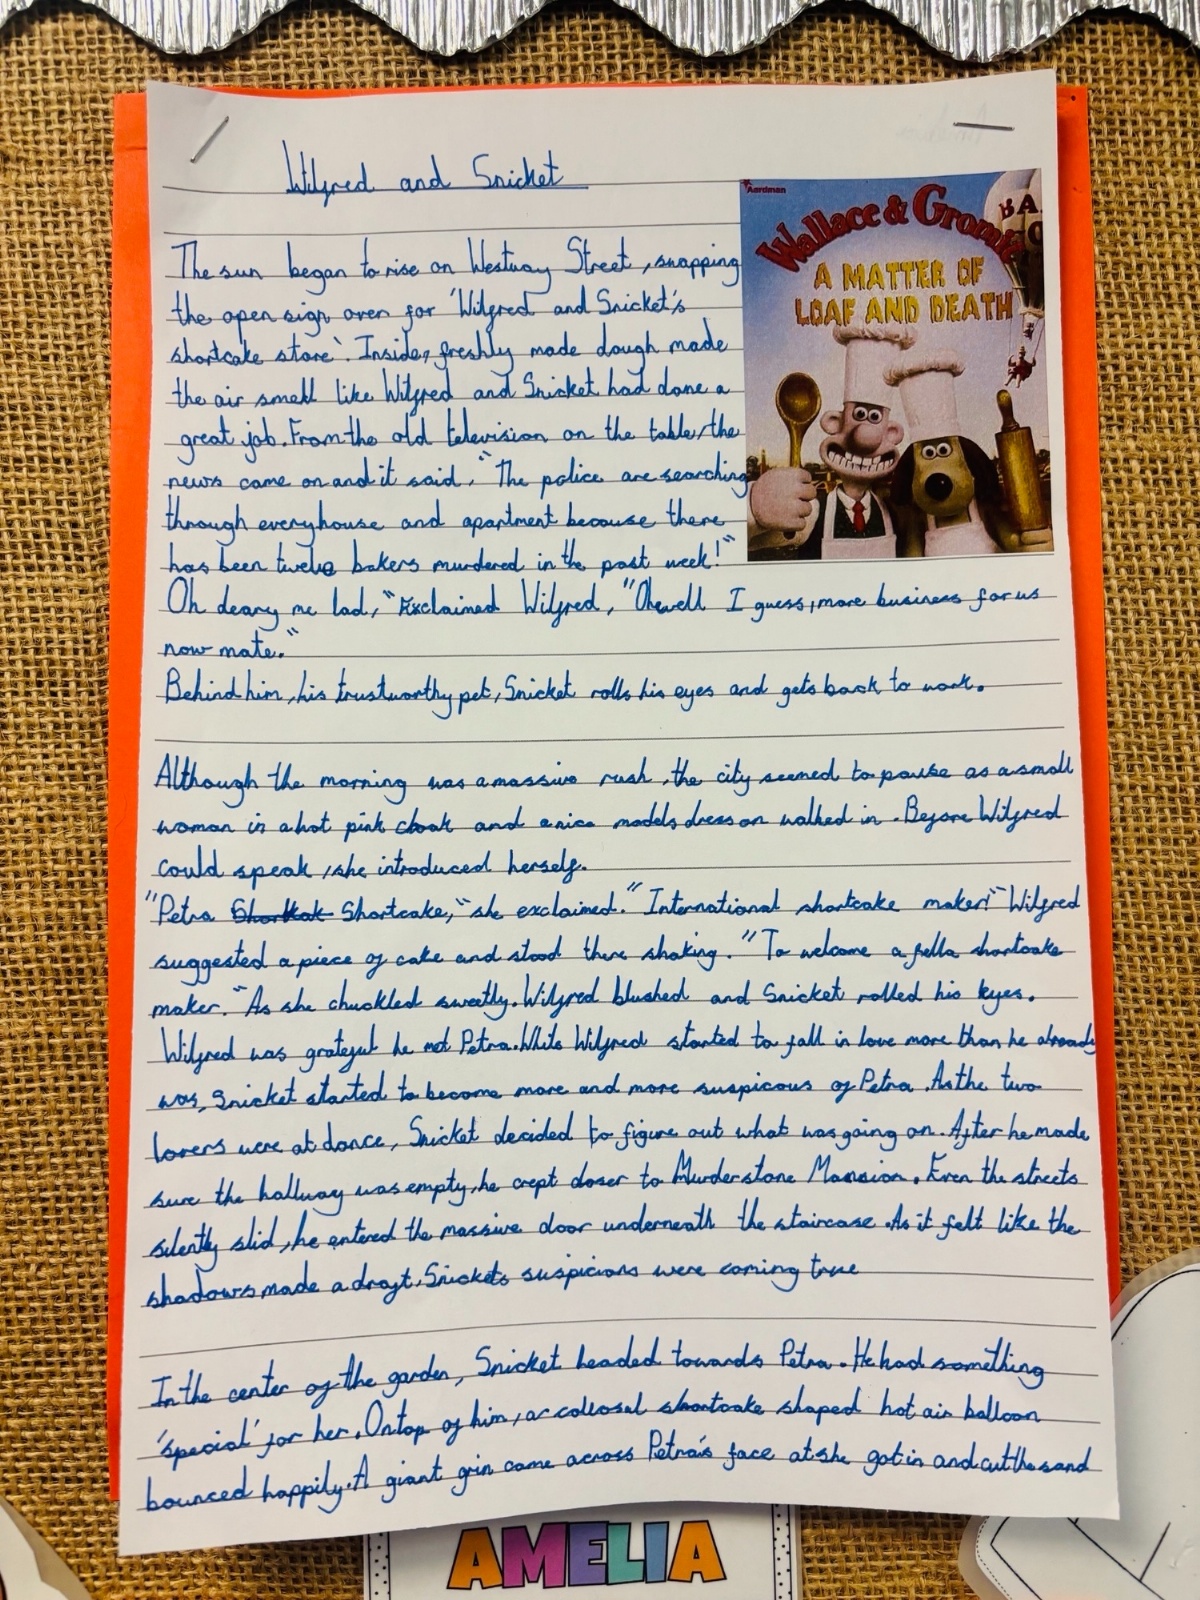 Wilfred and Snicket
Aardman
Wallace & Gromit
A MATTER OF
LOAF AND DEATH
BA
The sun began to rise on Westway Street, snapping
the open sign over for 'Wilfred and Snicket's
shortcake store'. Inside, freshly made dough made
the air smell like Wilfred and Snicket had done a
great job. From the old television on the table, the
news came on and it said, "The police are searching
through every house and apartment because there
has been twelve bakers murdered in the past week!"
Oh deary me lad," Exclaimed Wilfred, "Oh well I guess, more business for us
now mate."
Behind him, his trustworthy pet, Snicket rolls his eyes and gets back to work.
Although the morning was a massive rush, the city seemed to pause as a small
woman in a hot pink cloak and a nice models dress on walked in. Before Wilfred
could speak, she introduced herself.
"Petra Shortkak Shortcake," she exclaimed. "International shortcake maker!" Wilfred
suggested a piece of cake and stood there shaking. "To welcome a fella shortcake
maker." As she chuckled sweetly. Wilfred blushed and Snicket rolled his eyes.
Wilfred was grateful he met Petra. While Wilfred started to fall in love more than he already
was, Snicket started to become more and more suspicous of Petra. As the two
lovers were at dance, Snicket decided to figure out what was going on. After he made
sure the hallway was empty, he crept closer to Murderstone Mansion. Even the streets
silently slid, he entered the massive door underneath the staircase. As it felt like the
shadows made a draft, Snickets suspicions were coming true
In the center of the garden, Snicket headed towards Petra. He had something
'special' for her. On top of him, a collosal shortcake shaped hot air balloon
bounced happily. A giant grin came across Petra's face at she got in and cut the sand
AMELIA